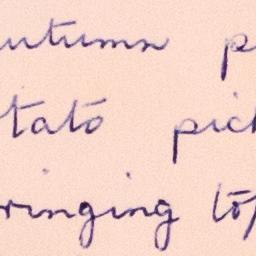 utumn p
tato pick
ringing to